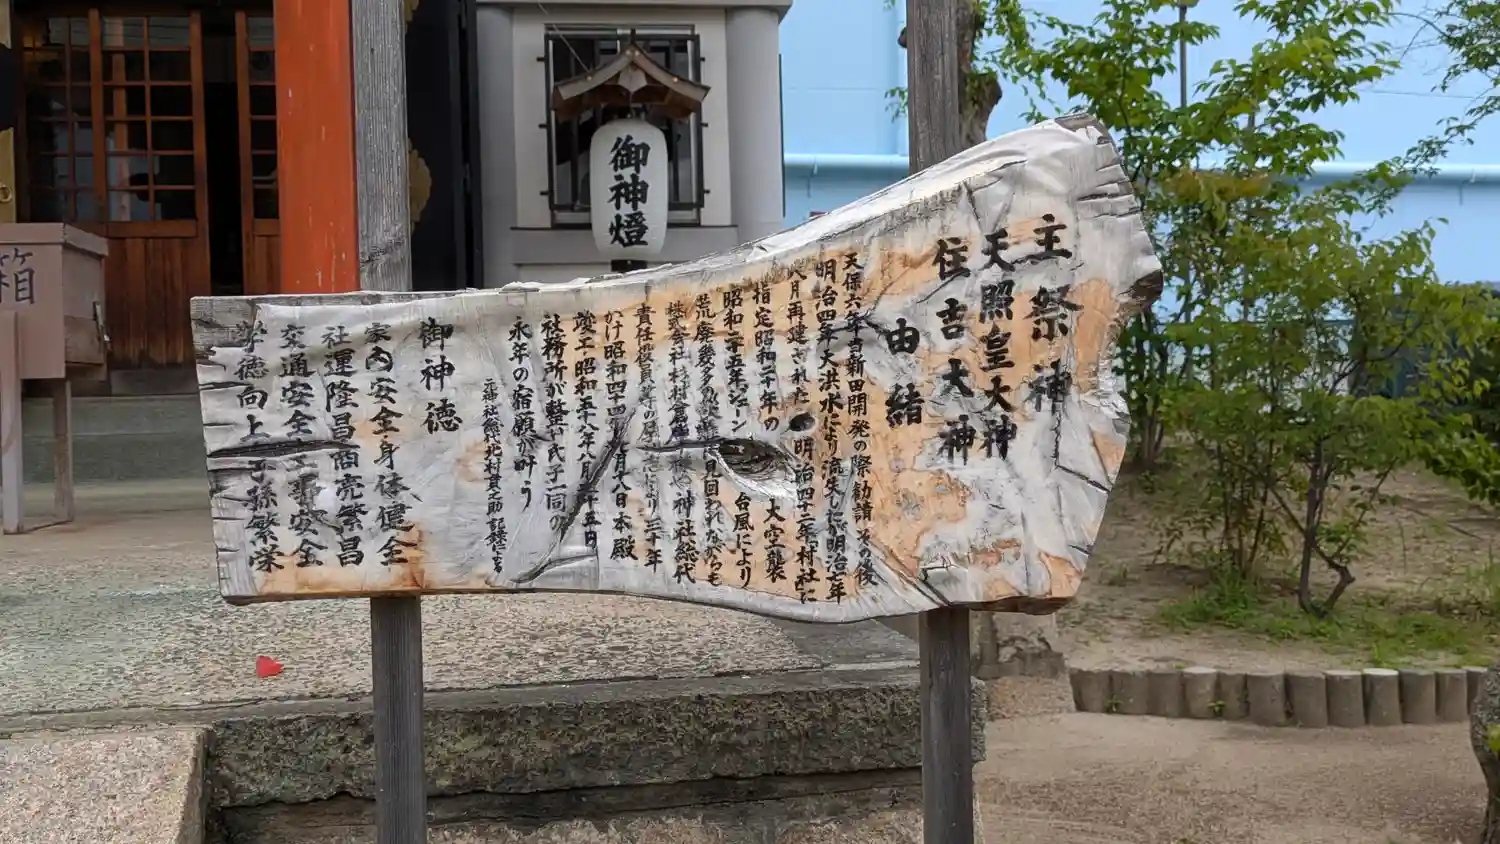 主祭神
天照皇大神
住吉大神
由結
天保六年 吉新田開発の際勧請 その後
明治四年大洪水により流失したが明治七年
八月再建された 明治四十二年 村社に
指定 昭和二十年の 大空襲
昭和二十五年ジェーン 台風により
荒廃幾多 回われながらも
株式会社杉村倉庫 神社総代
責任役員 により 三十年
かけ昭和四十四 月八日本殿
竣工 昭和五十八年八月二十五日
社務所が整い氏子一同の
永年の宿願が叶う
元神社総代北村貫之助 記録による
御神徳
家内安全身体健全
社運隆昌商売繁昌
交通安全工事安全
学徳向上子孫繁栄
御神燈
箱